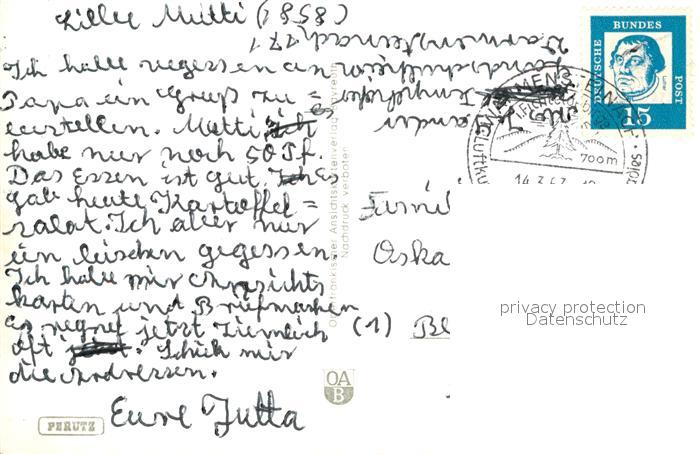 Liebe Mutti (8581)
Ich habe vegessen an
Papa ein Gruß zu =
es
erstellen. Mutti ich
habe nur noch 50 Pf.
Das Essen ist gut. Es
gab heute Kartoffel =
salat. Ich aber nur
ein bischen gegessen.
Ich habe mir Ansichts
karten und Briefmarken
es regnet jetzt ziemlich
oft. Schick mir
die Adressen.
Eure Jutta
Warmensteinach 171
Landschulheim
DEUTSCHE BUNDES POST
15
Luther
WARMENSTEINACH
700m
14.3.63
Famil
Oska
(1) Be
Oberfränkischer Ansichtskartenverlag Bayreuth
Nachdruck verboten
OA
B
PERUTZ
privacy protection
Datenschutz